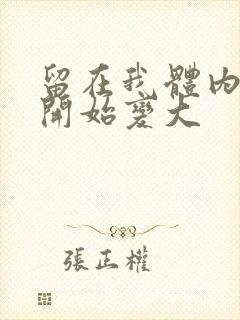 留在我體内
開始變大
張正權